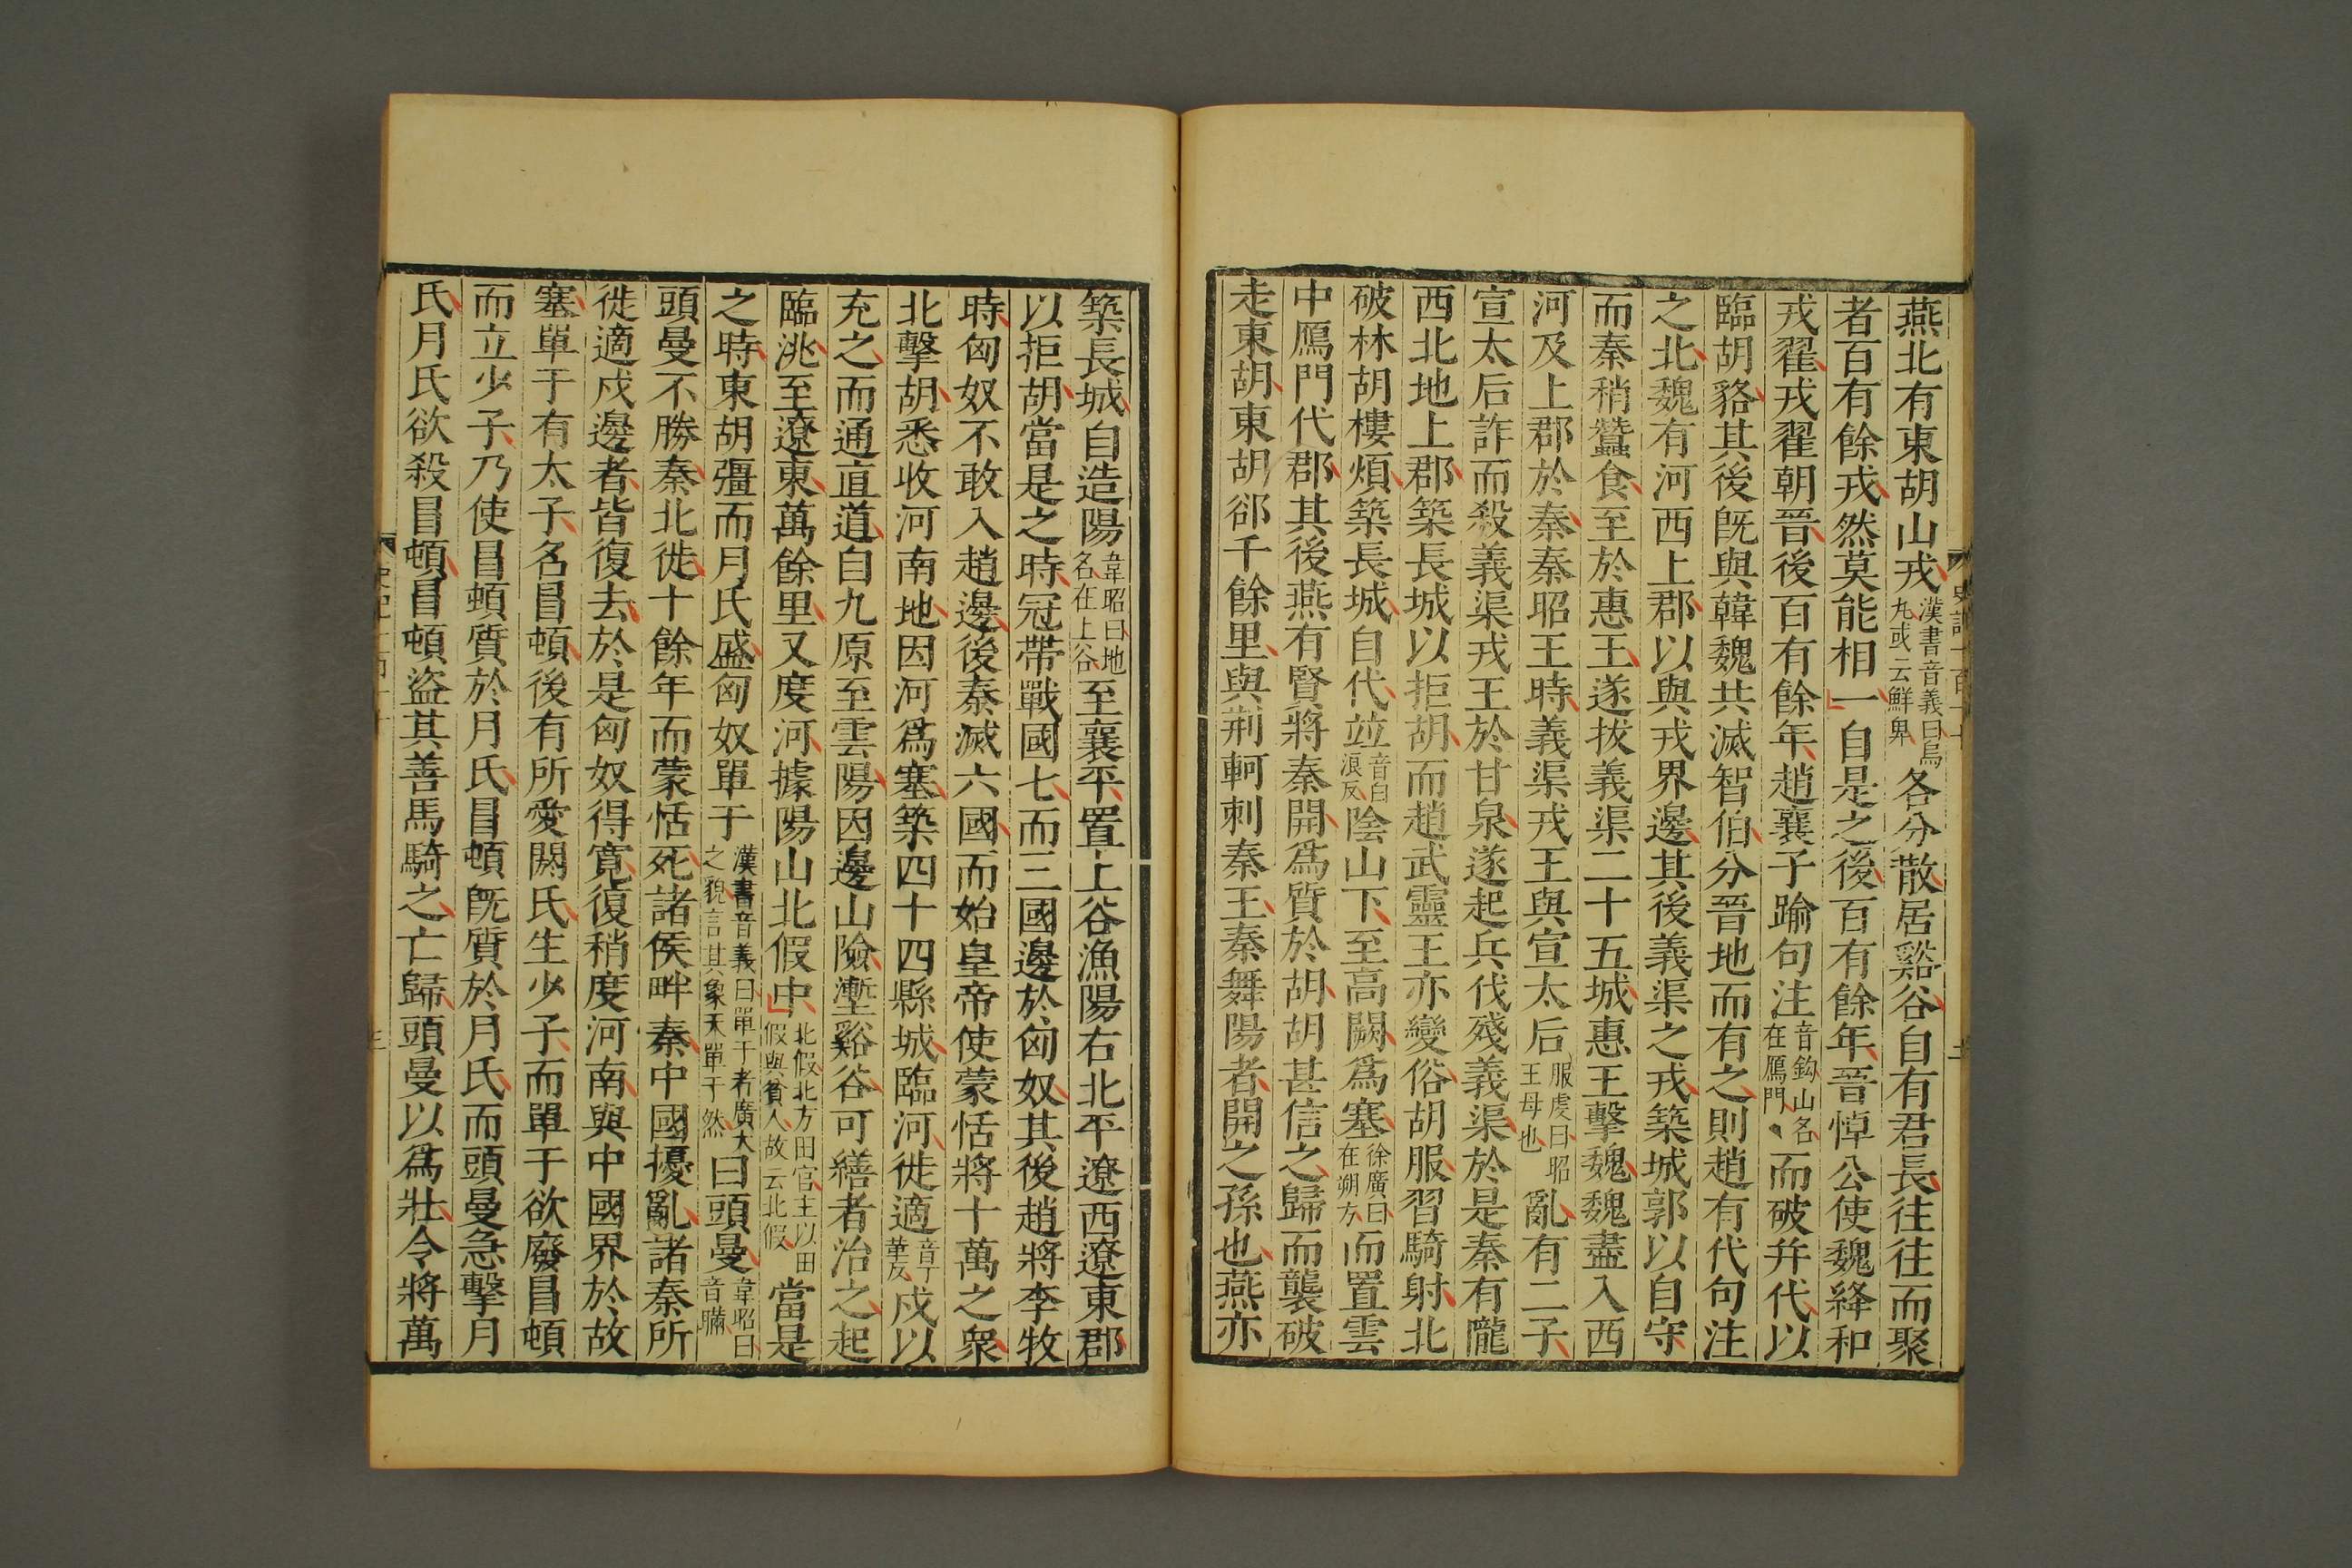 燕北有東胡山戎漢書音義曰烏九或云鮮卑各分散居谿谷自有君長往往而聚
者百有餘戎然莫能相一自是之後百有餘年晉悼公使魏絳和
戎翟戎翟朝晉後百有餘年趙襄子踰句注音鉤山名在鴈門而破并代以
臨胡貉其後旣與韓魏共滅智伯分晉地而有之則趙有代句注
之北魏有河西上郡以與戎界邊其後義渠之戎築城郭以自守
而秦稍蠶食至於惠王遂拔義渠二十五城惠王擊魏魏盡入西
河及上郡於秦秦昭王時義渠戎王與宣太后服虔曰昭王母也亂有二子
宣太后詐而殺義渠戎王於甘泉遂起兵伐殘義渠於是秦有隴
西北地上郡築長城以拒胡而趙武靈王亦變俗胡服習騎射北
破林胡樓煩築長城自代竝音白浪反陰山下至高闕爲塞徐廣曰在朔方而置雲
中鴈門代郡其後燕有賢將秦開爲質於胡胡甚信之歸而襲破
走東胡東胡郤千餘里與荆軻刺秦王秦舞陽者開之孫也燕亦
築長城自造陽韋昭曰地名在上谷至襄平置上谷漁陽右北平遼西遼東郡
以拒胡當是之時冠帶戰國七而三國邊於匈奴其後趙將李牧
時匈奴不敢入趙邊後秦滅六國而始皇帝使蒙恬將十萬之衆
北擊胡悉收河南地因河爲塞築四十四縣城臨河徙適音丁革反戍以
充之而通直道自九原至雲陽因邊山險壍谿谷可繕者治之起
臨洮至遼東萬餘里又度河據陽山北假中北假北方田官主以田假與貧人故云北假當是
之時東胡彊而月氏盛匈奴單于漢書音義曰單于者廣大之貌言其象天單于然曰頭曼韋昭曰音瞞
頭曼不勝秦北徙十餘年而蒙恬死諸侯畔秦中國擾亂諸秦所
徙適戍邊者皆復去於是匈奴得寬復稍度河南與中國界於故
塞單于有太子名冒頓後有所愛閼氏生少子而單于欲廢冒頓
而立少子乃使冒頓質於月氏冒頓旣質於月氏而頭曼急擊月
氏月氏欲殺冒頓冒頓盜其善馬騎之亡歸頭曼以爲壯令將萬